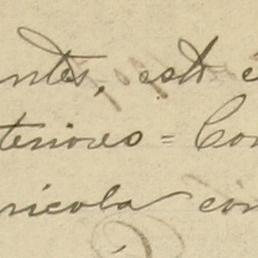 ntes, est e
teriores = Con
ricola con